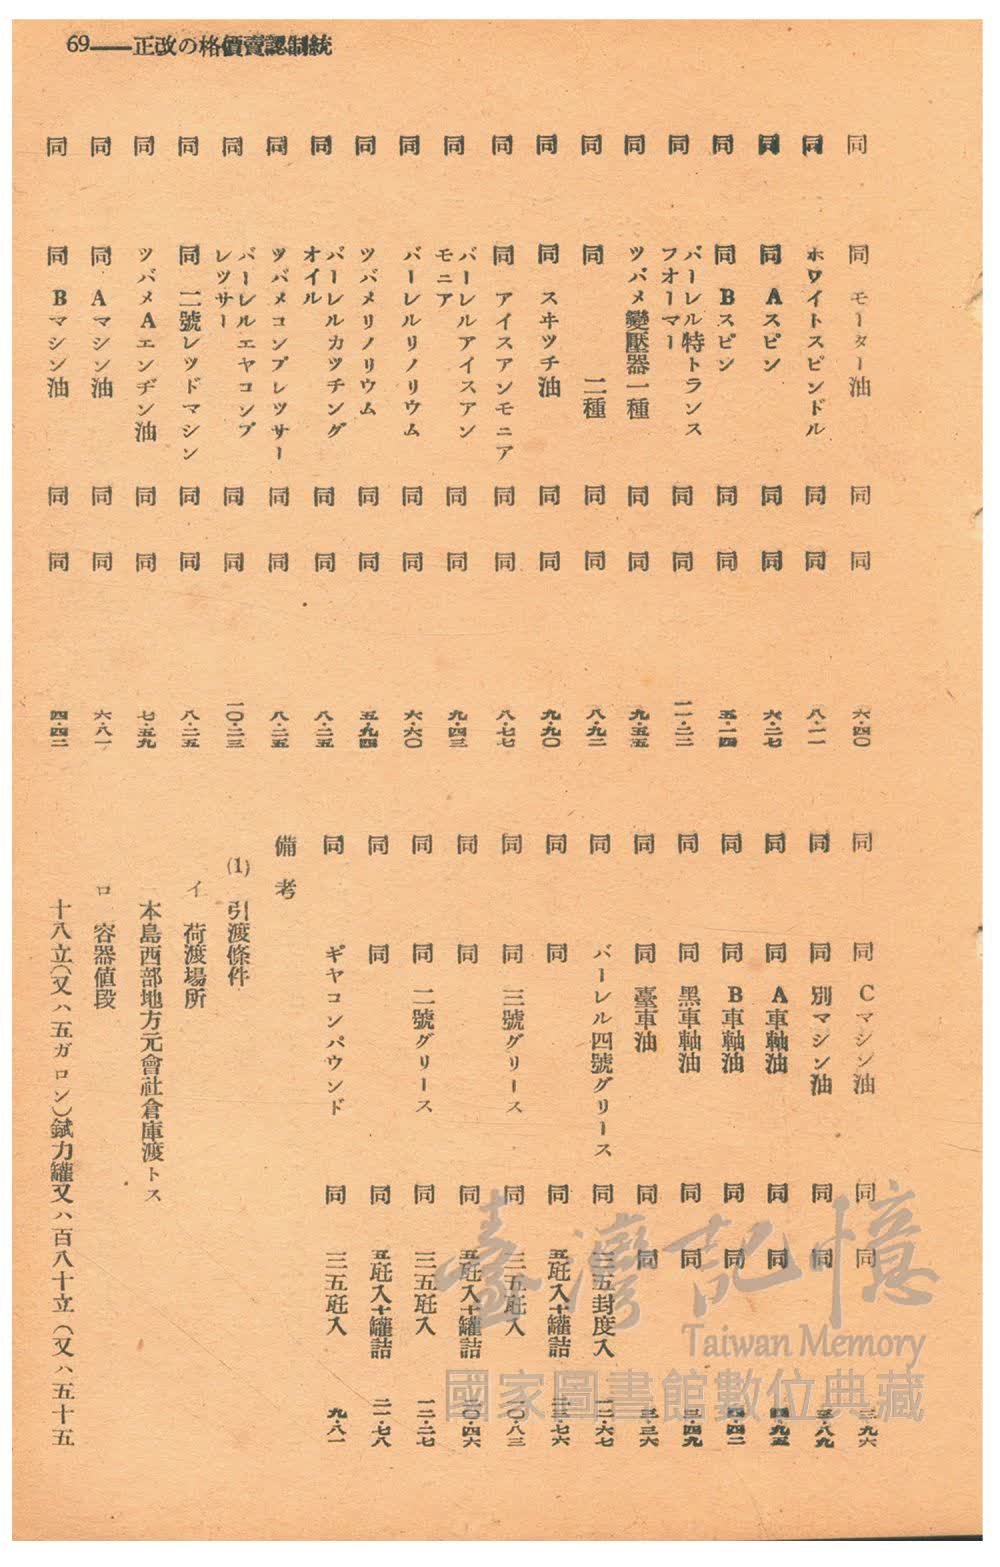 69——正改の格價賣認制統
同 同 モーター油 同 同 六・四〇
同 ホワイトスピンドル 同 同 八・一一
同 同 Aスピン 同 同 六・二七
同 同 Bスピン 同 同 五・一四
同 バーレル特トランスフオーマー 同 同 一一・二二
同 ツバメ變壓器一種 同 同 九・五五
同 同 二種 同 同 八・九二
同 同 スヰツチ油 同 同 九・九〇
同 同 アイスアンモニア 同 同 八・七七
同 バーレルアイスアンモニア 同 同 九・四三
同 バーレルリノリウム 同 同 六・六〇
同 ツバメリノリウム 同 同 五・九四
同 バーレルカツチングオイル 同 同 八・二五
同 ツバメコンプレツサー 同 同 八・二五
同 バーレルエヤコンプレツサー 同 同 一〇・二三
同 同 二號レツドマシン 同 同 八・二五
同 ツバメAエンヂン油 同 同 七・五九
同 同 Aマシン油 同 同 六・八一
同 同 Bマシン油 同 同 四・四二
同 同 Cマシン油 同 同 三・九六
同 同 別マシン油 同 同 三・八九
同 同 A車軸油 同 同 四・九五
同 同 B車軸油 同 同 四・四二
同 同 黑車軸油 同 同 三・四九
同 同 臺車油 同 同 三・三六
同 バーレル四號グリース 同 三五封度入 一二・六七
同 同 同 五瓩入十罐詰 二三・七六
同 同 三號グリース 同 三五瓩入 一〇・八三
同 同 同 五瓩入十罐詰 二〇・四六
同 同 二號グリース 同 三五瓩入 一二・二七
同 同 同 五瓩入十罐詰 二一・七八
同 ギヤコンパウンド 同 三五瓩入 九・八一
備考
(1) 引渡條件
イ 荷渡場所
本島西部地方元會社倉庫渡トス
ロ 容器値段
十八立(又ハ五ガロン)錻力罐又ハ百八十立(又ハ五十五
臺灣記憶
Taiwan Memory
國家圖書館數位典藏